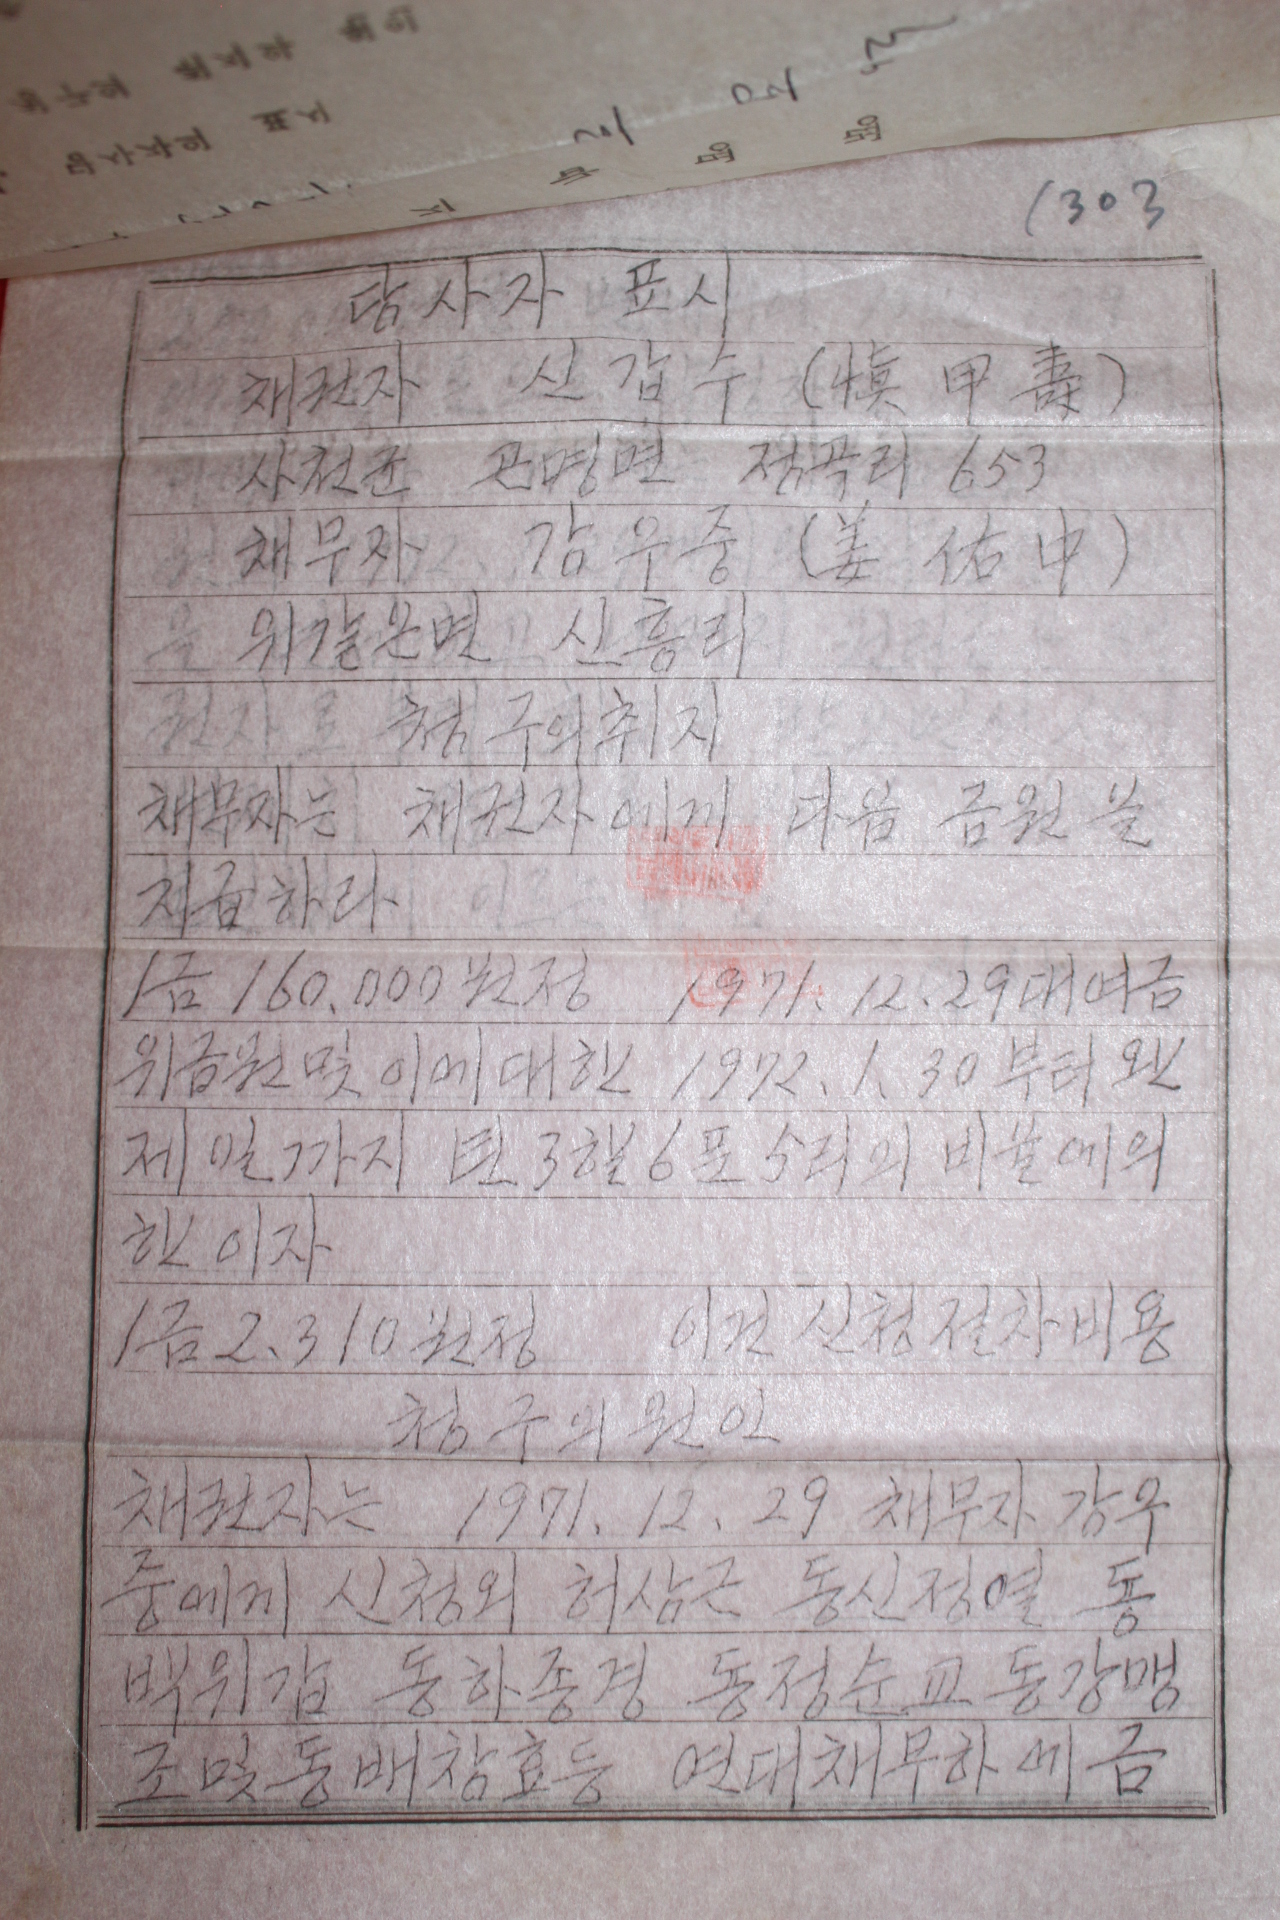 1303
당사자 표시
채권자 신갑수 (愼甲壽)
사천군 곤명면 정곡리 653
채무자 강우중 (姜佑中)
위같은면 신흥리
청구의취지
채무자는 채권자에게 다음 금원을
지급하라
1금 160.000원정 1971. 12. 29대여금
위금원및 이에대한 1972. 1. 30부터 완
제일까지 년 3할6푼5리의 비율에의
한 이자
1금 2.310원정 이건 신청절차비용
청구의 원인
채권자는 1971. 12. 29 채무자 강우
중에게 신청외 허삼근 동신정열 동
백위갑 동하종경 동정순교 동강맹
조및동배참효등 연대채무하에 금